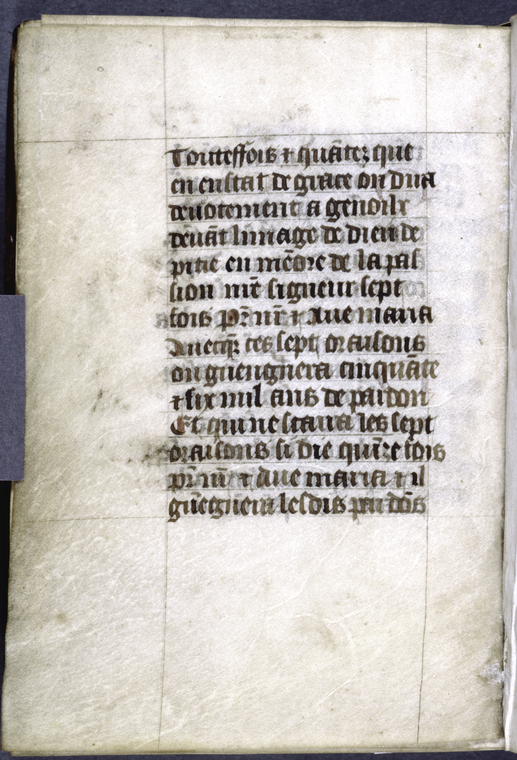 Toutteffois ⁊ quātez que
en eustat de grace on dira
deuotement a genoilx
deuāt limage de dieu de
pitie en mēore de la pas
sion nr̄e signeur sept
fois pr̄ nr̄ ⁊ Aue maria
Auecq̄z ces sept oraisons
on guengnera cinquāte
⁊ six mil ans de pardon
Et qui ne scaura les sept
oraisons si die quīze fois
pr̄ nr̄ ⁊ aue maria ⁊ il
guēgnera lesdis pardōs